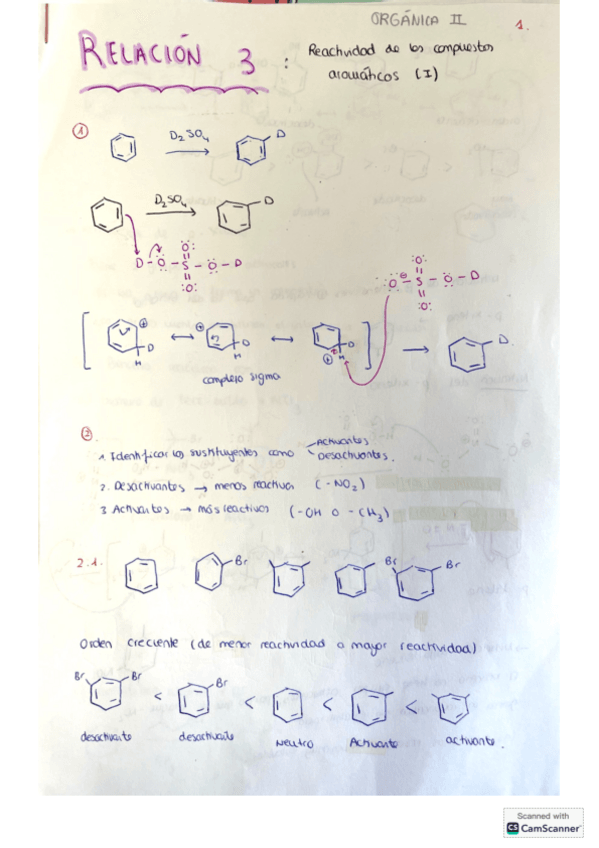 ORGÁNICA II 1.
RELACIÓN 3 : Reactividad de los compuestos
aromáticos (I)
① D₂SO₄ D
D₂SO₄ D
D - O - S - O - D
O
O
O - S - O - D
O
O
⊕ D H ⟷ ⊕ D H ⟷ ⊕ D H → D
complejo sigma
②
1. Identificar los sustituyentes como Activantes
Desactivantes.
2. Desactivantes → menos reactivos (-NO₂)
3 Activantes → más reactivos (-OH o -CH₃)
2.1. Br Br Br
Orden creciente (de menor reactividad a mayor reactividad)
Br Br < Br < < <
desactivante desactivante Neutro Activante activante.
Scanned with
CS CamScanner